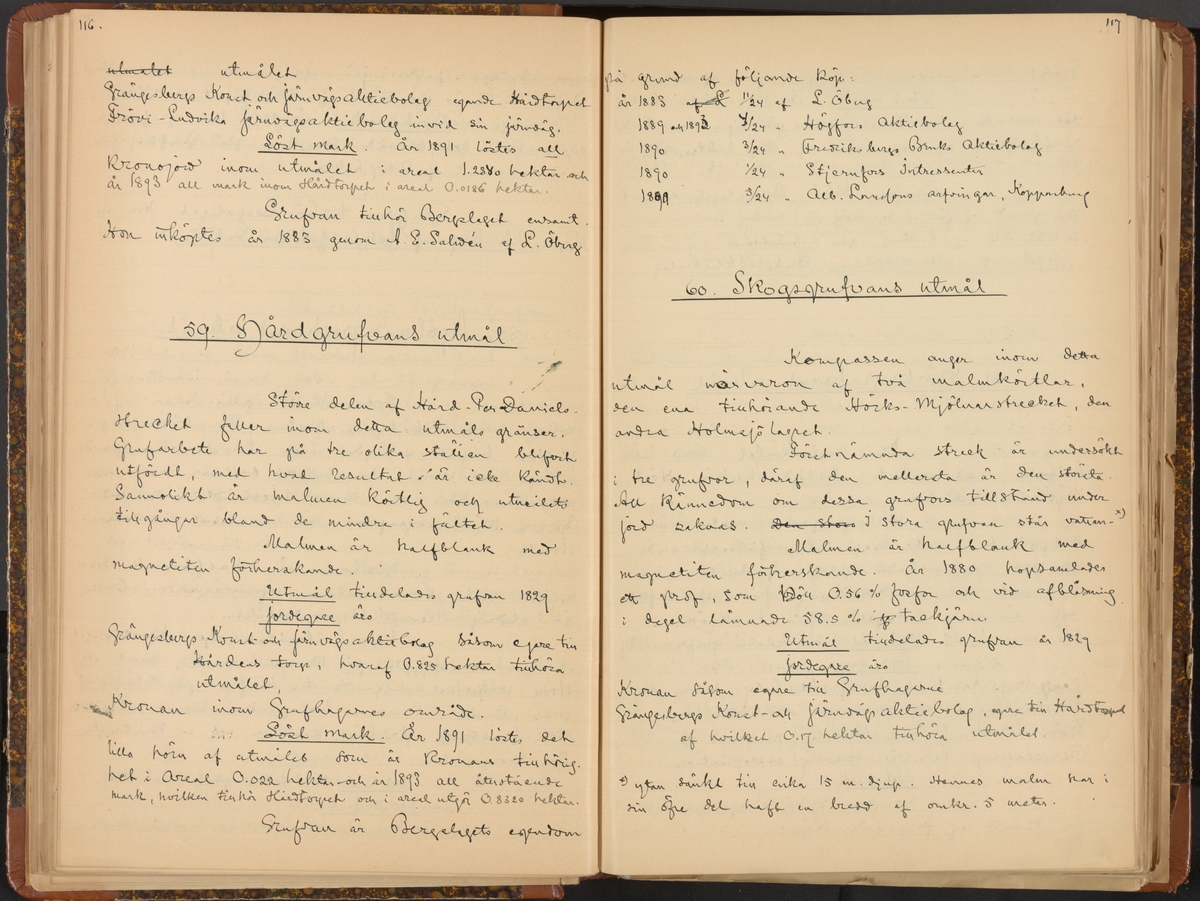 116.
utmålet utmålet
Grängesbergs Konst och Järnvägsaktiebolag egande Hårdtorpet
Frövi-Ludvika järnvägsaktiebolag invid sin järnväg.
Löst mark År 1891 löstes all
Kronojord inom utmålet i areal 1.2380 hektar och
år 1893 all mark inom Hårdtorpet i areal 0.0186 hektar.
Grufvan tillhör Bergslaget ensamt.
Hon inköptes år 1883 genom A. E. Salwén af L. Öberg
59. Hårdgrufvans utmål
Större delen af Hård-Per-Daniels-
strecket faller inom detta utmåls gränser.
Grufarbete har på tre olika ställen blifvit
utfördt, med hvad resultat är icke kändt.
Sannolikt är malmen körtlig och utmålets
tillgångar bland de mindre i fältet.
Malmen är halfblank med
magnetiten förherskande.
Utmål tilldelades grufvan 1829
Jordegare äro
Grängesbergs Konst och Järnvägsaktiebolag såsom egare till
Hårdens torp, hvaraf 0.825 hektar tillhöra
utmålet,
Kronan inom Grufhagarnes område.
Löst mark. År 1891 löstes det
lilla hörn af utmålet som är Kronans tillhörig-
het i Areal 0.022 hektar och år 1893 all återstående
mark, hvilken tillhör Hårdtorpet och i areal utgör 0.8320 hektar.
Grufvan är Bergslagets egendom
117
på grund af följande köp:
år 1883 af L 11/24 af L. Öberg
1889 och 1893 /24 " Högfors Aktiebolag
1890 3/24 " Fredriksbergs Bruks Aktiebolag
1890 1/24 " Stjernfors Intressenter
1891 3/24 " Alb. Larssons arfvingar, Kopparberg
60. Skogsgrufvans utmål
Kompassen anger inom detta
utmål närvaron af två malmkörtlar,
den ena tillhörande Höcks-Mjölnarstrecket, den
andra Holmsjölagret.
Förstnämnda streck är undersökt
i tre grufvor, däraf den mellersta är den största.
All kännedom om dessa grufvors tillstånd under
jord saknas. Den stora I stora grufvan står vatten- x)
Malmen är halfblank med
magnetiten förherskande. År 1880 hopsamlades
ett prof, som höll 0.56 % fosfor och vid afblåsning
i degel lämnade 58.5 % tackjärn
Utmål tilldelades grufvan år 1829
Jordegare äro
Kronan såsom egare till Grufhagarne
Grängesbergs Konst- och Järnvägsaktiebolag, egare till Hårdtorpet
af hvilket 0.17 hektar tillhöra utmålet.
x) ytan sänkt till cirka 15 m. djup. Hennes malm har i
sin öfre del haft en bredd af omkr. 5 meter.